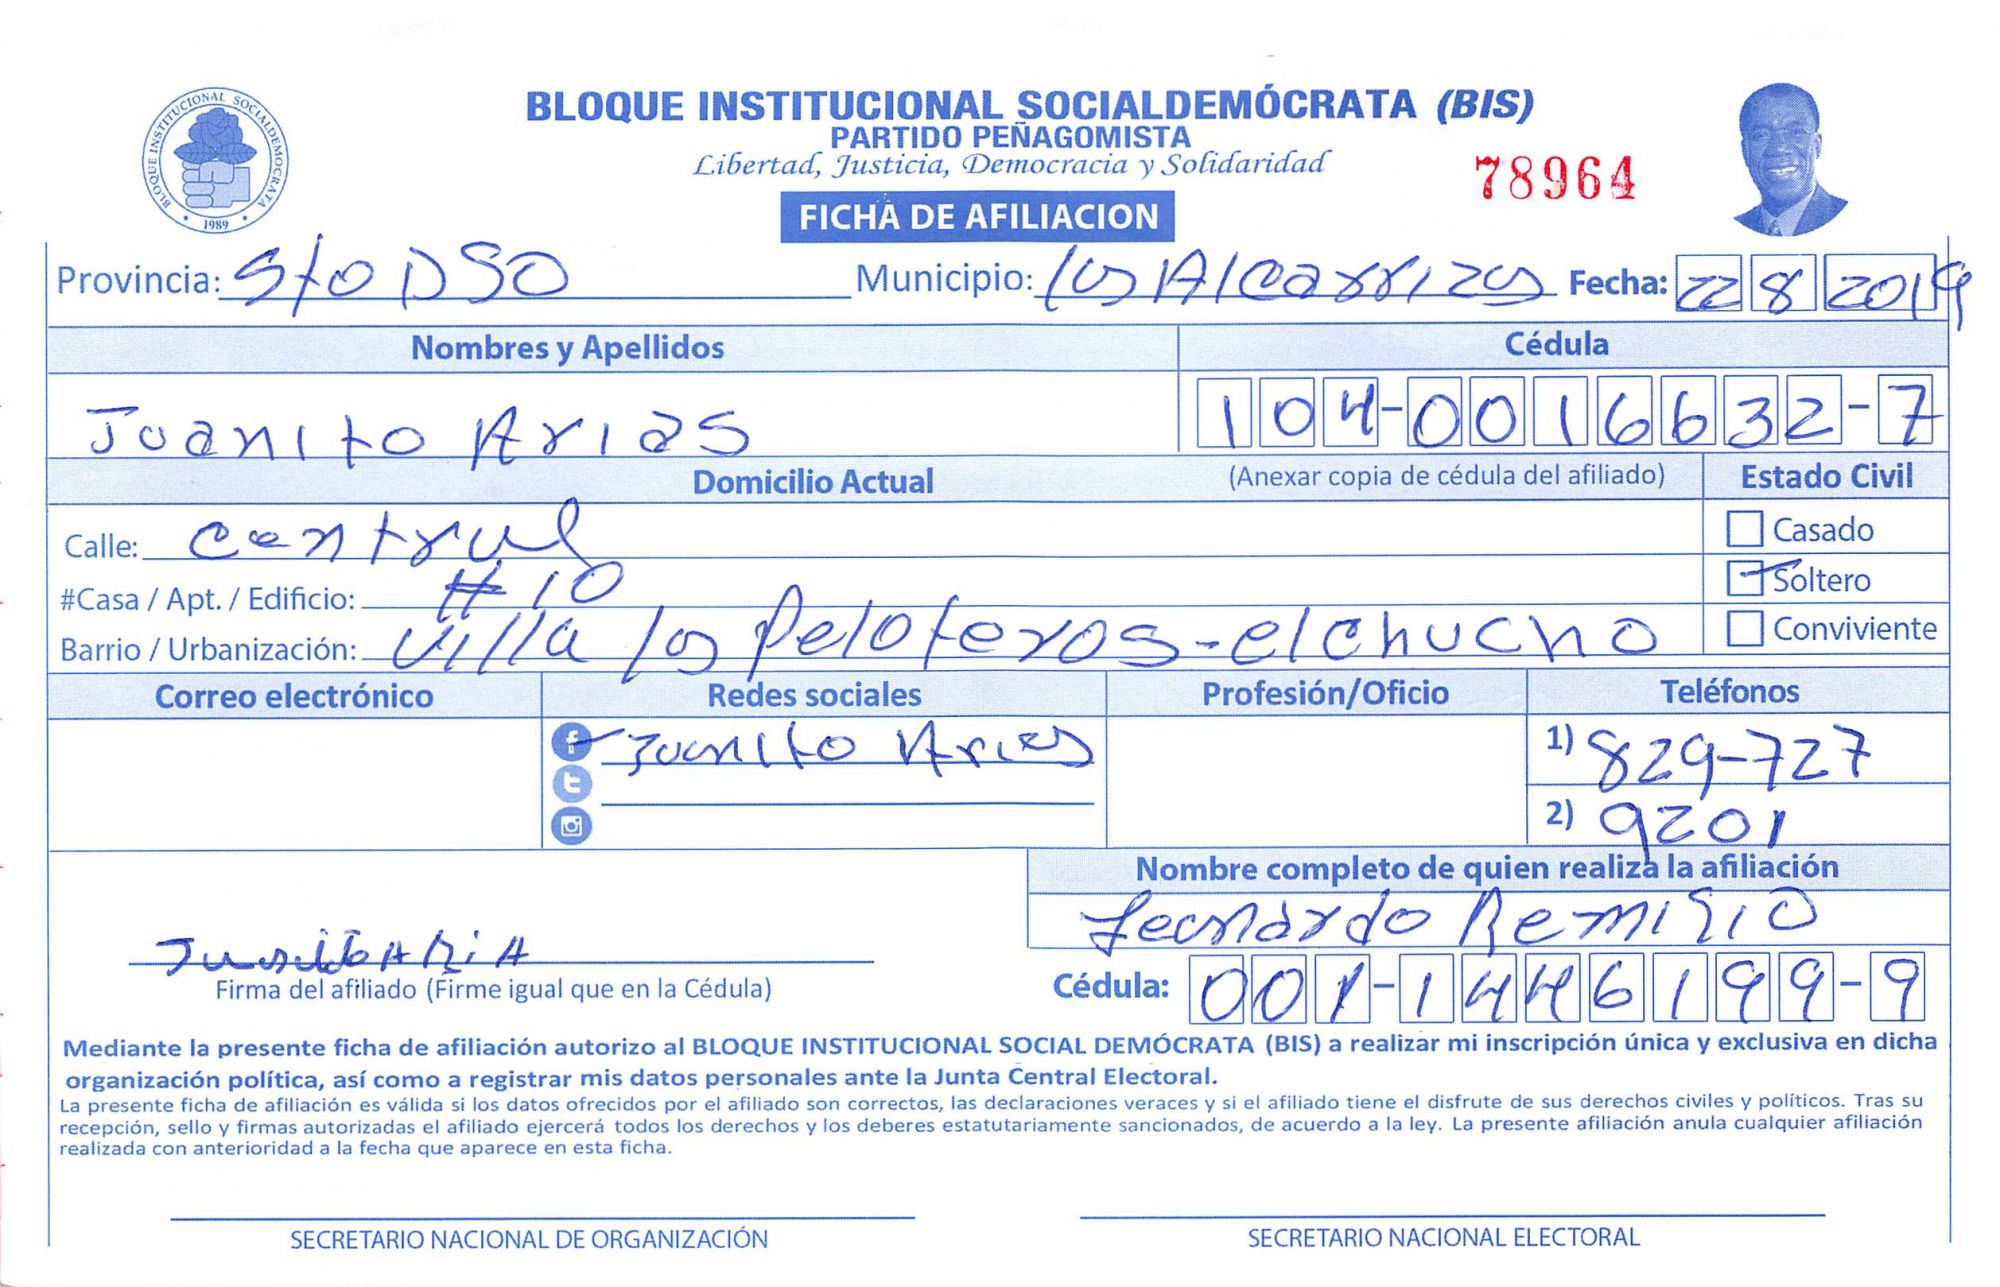 BLOQUE INSTITUCIONAL SOCIALDEMOCRATA
1989
BLOQUE INSTITUCIONAL SOCIALDEMÓCRATA (BIS)
PARTIDO PEÑAGOMISTA
Libertad, Justicia, Democracia y Solidaridad
78964
FICHA DE AFILIACION
Provincia: Sto DSO Municipio: los Alcarrizos Fecha: 22 8 2019
Nombres y Apellidos Cédula
Juanito Arias 104-0016632-7
Domicilio Actual (Anexar copia de cédula del afiliado) Estado Civil
Calle: central Casado
#Casa / Apt. / Edificio: #10 Soltero
Barrio / Urbanización: villa los peloteros-elchucho Conviviente
Correo electrónico Redes sociales Profesión/Oficio Teléfonos
Juanito Arias 1) 829-727
2) 9201
Nombre completo de quien realiza la afiliación
Leonardo Remigio
Firma del afiliado (Firme igual que en la Cédula) Cédula: 001-1446199-9
Mediante la presente ficha de afiliación autorizo al BLOQUE INSTITUCIONAL SOCIAL DEMÓCRATA (BIS) a realizar mi inscripción única y exclusiva en dicha
organización política, así como a registrar mis datos personales ante la Junta Central Electoral.
La presente ficha de afiliación es válida si los datos ofrecidos por el afiliado son correctos, las declaraciones veraces y si el afiliado tiene el disfrute de sus derechos civiles y políticos. Tras su
recepción, sello y firmas autorizadas el afiliado ejercerá todos los derechos y los deberes estatutariamente sancionados, de acuerdo a la ley. La presente afiliación anula cualquier afiliación
realizada con anterioridad a la fecha que aparece en esta ficha.
SECRETARIO NACIONAL DE ORGANIZACIÓN SECRETARIO NACIONAL ELECTORAL